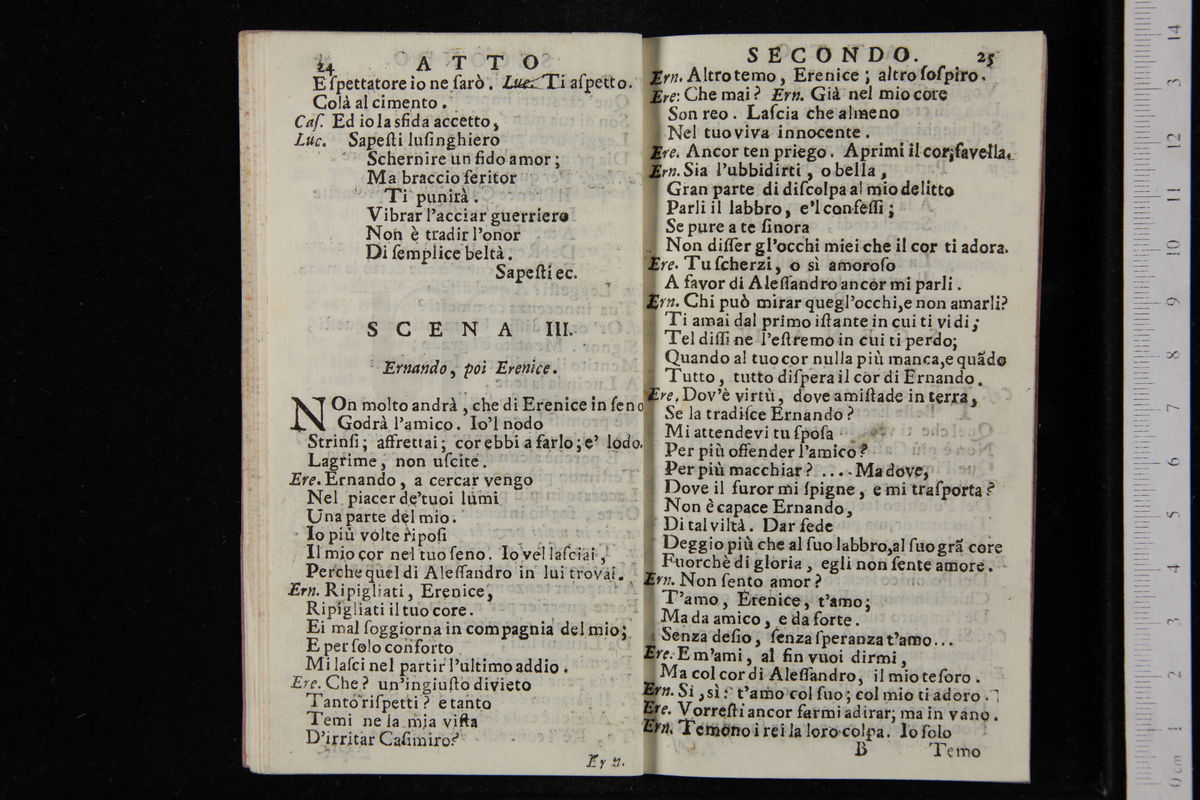 24 ATTO
E ſpettatore io ne ſarò. Luc. Ti aſpetto.
Colà al cimento.
Caſ. Ed io la sfida accetto,
Luc. Sapeſti luſinghiero
Schernire un fido amor;
Ma braccio feritor
Ti punirà.
Vibrar l'acciar guerriero
Non è tradir l'onor
Di ſemplice beltà.
Sapeſti ec.
SCENA III.
Ernando, poi Erenice.
NOn molto andrà, che di Erenice in ſeno
Godrà l'amico. Io'l nodo
Strinſi; affrettai; cor ebbi a farlo; e' lodo.
Lagrime, non uſcite.
Ere. Ernando, a cercar vengo
Nel piacer de'tuoi lumi
Una parte del mio.
Io più volte ripoſi
Il mio cor nel tuo ſeno. Io vel laſciai,
Perche quel di Aleſſandro in lui trovai.
Ern. Ripigliati, Erenice,
Ripigliati il tuo core.
Ei mal ſoggiorna in compagnia del mio;
E per ſolo conforto
Mi laſci nel partir l'ultimo addio.
Ere. Che? un'ingiuſto divieto
Tanto riſpetti? e tanto
Temi ne la mia viſta
D'irritar Caſimiro?
Ern.
SECONDO. 25
Ern. Altro temo, Erenice; altro ſoſpiro.
Ere: Che mai? Ern. Già nel mio core
Son reo. Laſcia che almeno
Nel tuo viva innocente.
Ere. Ancor ten priego. Aprimi il cor; favella.
Ern. Sia l'ubbidirti, o bella,
Gran parte di diſcolpa al mio delitto
Parli il labbro, e'l confeſſi;
Se pure a te ſinora
Non diſſer gl'occhi miei che il cor ti adora.
Ere. Tu ſcherzi, o sì amoroſo
A favor di Aleſſandro ancor mi parli.
Ern. Chi può mirar quegl'occhi, e non amarli?
Ti amai dal primo iſtante in cui ti vidi;
Tel diſſi ne l'eſtremo in cui ti perdo;
Quando al tuo cor nulla più manca, e quãdo
Tutto, tutto diſpera il cor di Ernando.
Ere. Dov'è virtù, dove amiſtade in terra,
Se la tradiſce Ernando?
Mi attendevi tu ſpoſa
Per più offender l'amico?
Per più macchiar? .... Ma dove,
Dove il furor mi ſpigne, e mi traſporta?
Non è capace Ernando,
Di tal viltà. Dar fede
Deggio più che al ſuo labbro, al ſuo grã core
Fuorchè di gloria, egli non ſente amore.
Ern. Non ſento amor?
T'amo, Erenice, t'amo;
Ma da amico, e da forte.
Senza deſio, ſenza ſperanza t'amo...
Ere. E m'ami, al fin vuoi dirmi,
Ma col cor di Aleſſandro, il mio teſoro.
Ern. Sì, sì: t'amo col ſuo; col mio ti adoro.
Ere. Vorreſti ancor farmi adirar; ma in vano.
Ern. Temono i rei la loro colpa. Io ſolo
B Temo